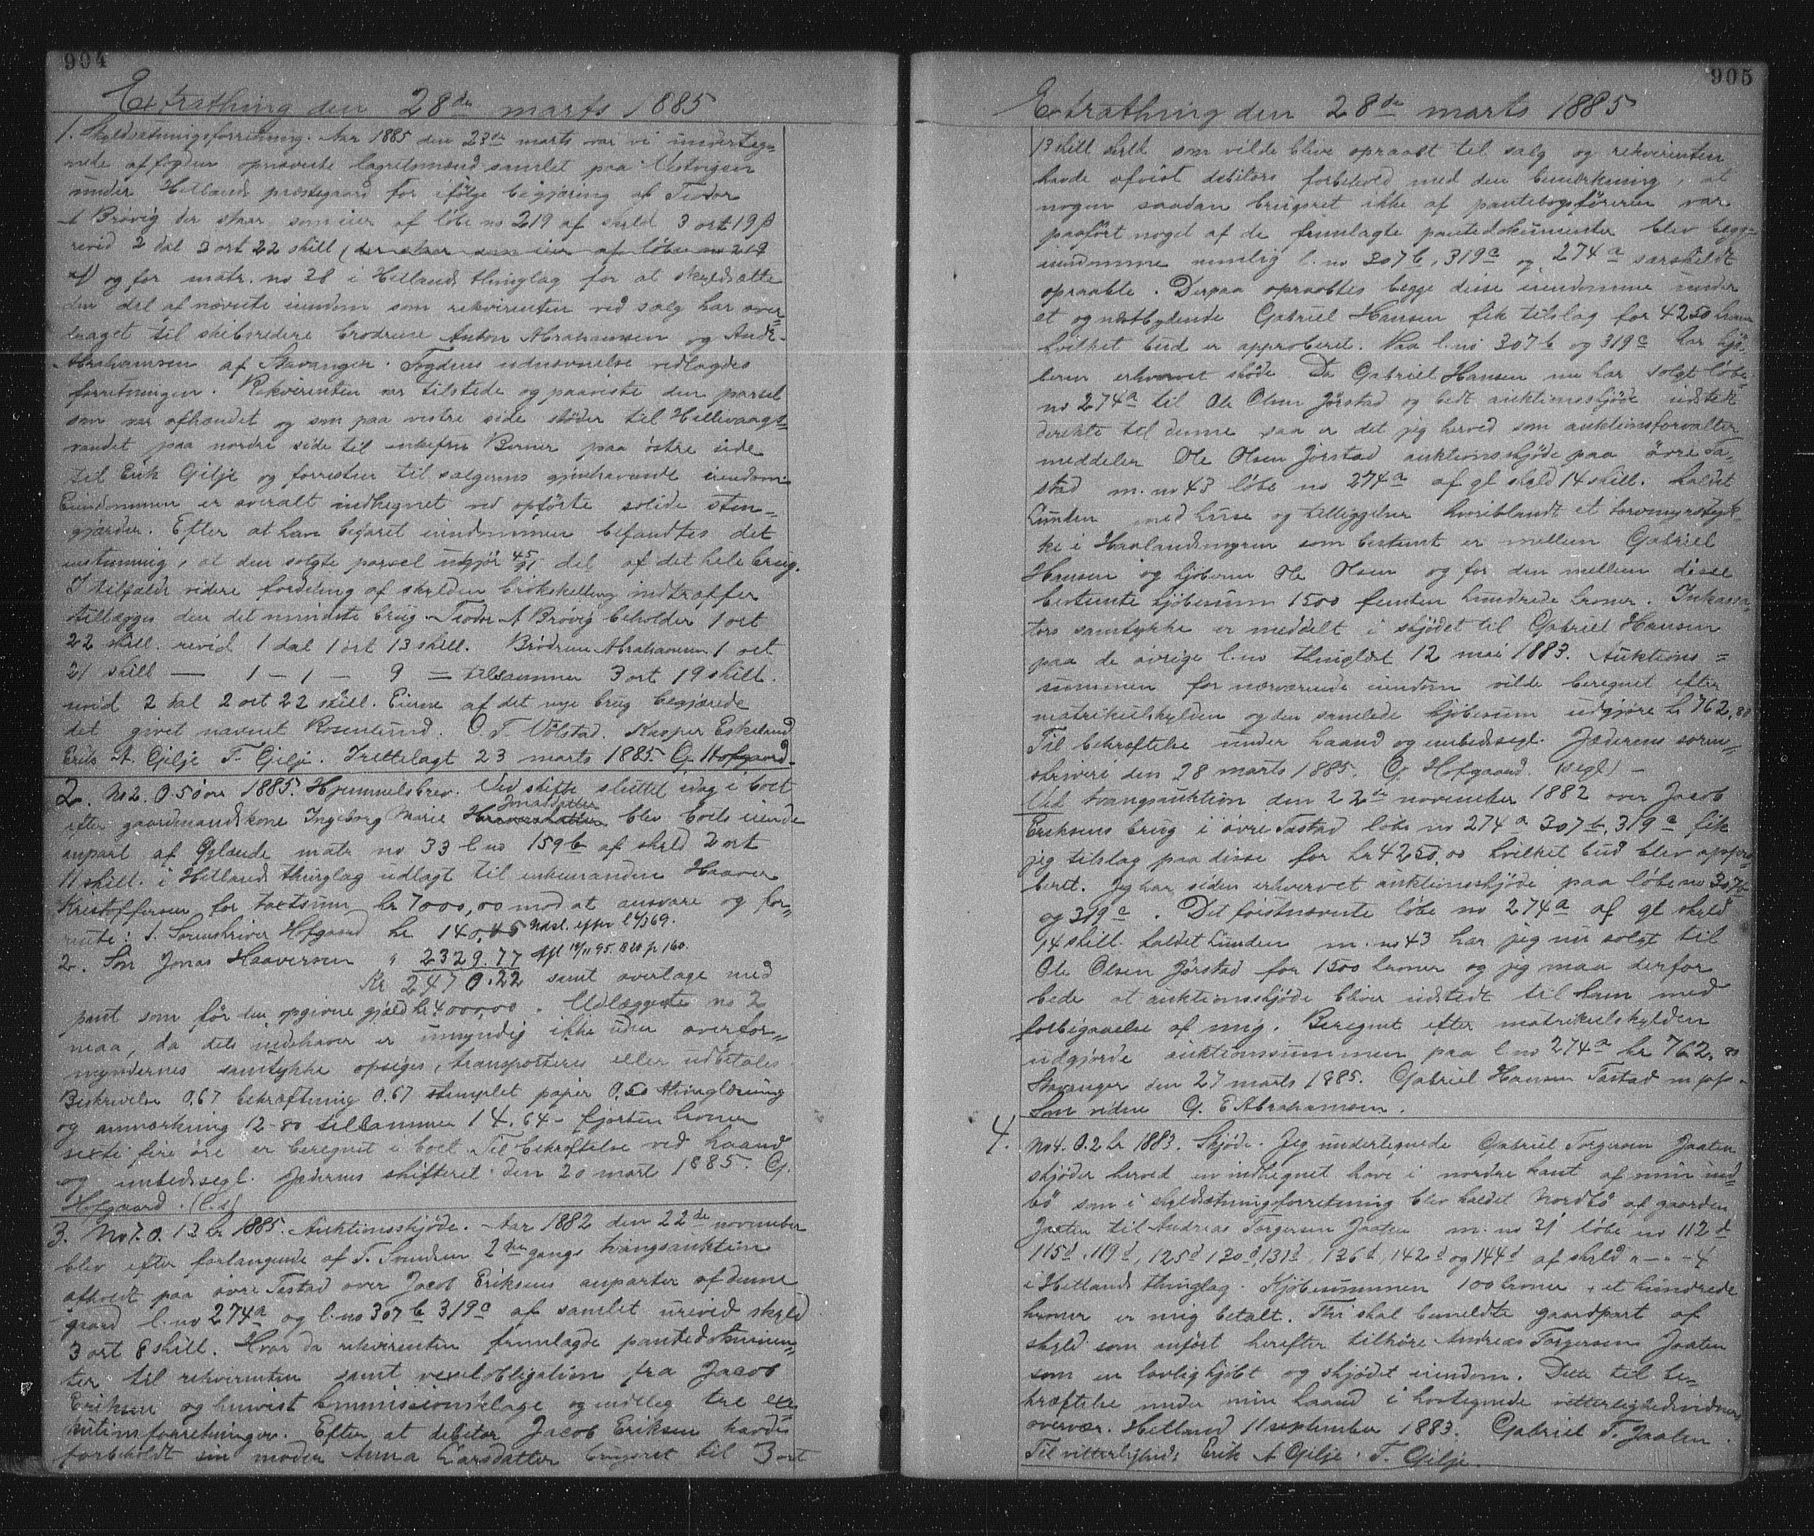 904
Extrathing den 28de marts 1885
1. Skyldsætningsforretning. Aar 1885 den 23de marts var vi underteg-
nede af fogden opnævnte lagretsmænd samlet paa Vestvigen
under Hetlands præstegaard for ifölge begjæring af Tiodor
A Brövig der staar som eier af löbe no 219 af skyld 3 ort 19 β
revid 2 dal 3 ort 22 skill, (der staar som eier af löbe no 219
af) og for matr. no 28 i Hetlands thinglag for at skyldsætte
den del af nævnte eiendom som rekvirenten ved salg har over-
draget til skibsredere brödrene Anton Abrahamsen og Andr.
Abrahamsen af Stavanger. Fogdens udnævnelse vedlagdes
forretningen. Rekvirenten var tilstede og paaviste den parsel
som var afhændet og som paa vestre side stöder til Hillevaags-
vandet paa nordre side til enkefru Berner paa östre side
til Erik Gilje og forresten til sælgerens gjenhavende eiendom
Eiendommen er overalt indhegnet ved opförte solide sten-
gjærder. Efter at have befaret eiendommen befandtes det
enstemmig, at den solgte parsel udgjör 45/91 del af det hele brug.
I tilfælde videre fordeling af skylden brökskilling indtræffer
tillægges den det mindste brug. Tiodor A Brövig beholder 1 ort
22 skill. revid 1 dal 1 ort 13 skill. Brödrene Abrahamsen 1 ort
21 skill — 1 - 1 - 9 = tilsammen 3 ort 19 skill.
revid 2 dal 2 ort 22 skill. Eierne af det nye brug begjærede
det givet navnet Rosenlund. O T. Völstad. Kasper Eskeland
Erik A. Gilje T. Gilje. Irettelagt 23 marts 1885 G. Hofgaard.
2. No 2. 0.50 öre 1885. Hjemmelsbrev. Ved skifte sluttet idag i boet
efter gaardmandskone Ingeborg Marie Haaversdatter Jonasdatter blev boets eiende
anpart af Gjlænde matr no 33 l. no 159b af skyld 2 ort
11 skill. i Hetlands thinglag udlagt til enkemanden Haaver
Kristoffersen for taxtsum kr 7000,00 mod at ansvare og for-
rente: 1. Sorenskriver Hofgaard kr 140,45 Udsl. efter l 4/369.
2. Sön Jonas Haaversen " 2329.77 Afl 12/11 95. B 20 p. 160.
Kr 2470.22 samt overtage med
pant som för ... opgivne gjæld kr 4000,00. Udlæggets no 2
maa, da dets indehaver er umyndig ikke uden overfor-
myndernes samtykke opsiges, transporteres eller udbetales.
Beskrivelse 0.67 bekræftning 0.67 stemplet papir 0.50 thinglæsning
og anmærkning 12-80 tilsammen 14.64 - fjorten kroner
sexti fire öre er beregnet i boet. Til bekræftelse ved haand
og embedssegl. Jæderens skifteret den 20 mart 1885. G.
Hofgaard. (l.s)
3. No 7. 0. 12 kr 1885. Auktionsskjöde. Aar 1882 den 22de november
blev efter forlangende af T. Svendsen 2den gangs tvangsauktion
afholdt paa övre Tastad over Jacob Eriksens anparter af denne
gaard l. no 274a og l. no 307b 319c af samlet urevid skyld
3 ort 8 skill. Hvor da rekvirenten fremlagde pantedokumen-
ter til rekvirenten samt vexelobligation fra Jacob
Eriksen og henvist kommissionsklage og udlæg tre exe-
kutionsforretninger. Efter at debitor Jacob Eriksen havde
forbeholdt sin moder Anna Larsdatter brugsret til 3 ort
905
Extrathing den 28de marts 1885
13 skill skyld som vilde blive opraabt til salg og rekvirenten
havde afvist debitors forbehold med den bemærkning, at
nogen saadan brugsret ikke af pantebogsföreren var
paafört noget af de fremlagte pantedokumenter blev begge
eiendomme nemlig l. no 307b, 319c og 274a særskildt
opraabte. Derpaa opraabtes begge disse eiendomme under
et og höistbydende Gabriel Hansen fik tilslag for 4250 kroner
hvilket bud er approberet. Paa l. no 307b og 319c har kjö-
beren erhvervet sköde. Da Gabriel Hansen nu har solgt löbe-
no 274a til Ole Olsen Jörstad og bedt auktionsskjöde udstedt
direkte til denne saa er det jeg herved som auktionsforvalter
meddeler Ole Olsen Jörstad auktionsskjöde paa övre Ta-
stad m. no 43 löbe no 274a af gl skyld 14 skill. kaldet
Lunden med huse og tilliggelser hvoriblandt et torvmyrstyk-
ke i Haalandsmyren som bestemt er mellem Gabriel
Hansen og kjöberen Ole Olsen og for den mellem disse
bestemte kjöbesum 1500 femten hundrede kroner. Inkassa-
tors samtykke er meddelt i skjödet til Gabriel Hansen
paa de övrige l. no thinglæst 12 mai 1883. Auktions-
summen for nærværende eiendom vilde beregnet efter
matrikulskylden og den samlede kjöbesum udgjöre kr 762,80
Til bekræftelse under haand og embedssegl. Jæderens soren-
skriveri den 28 marts 1885. G Hofgaard. (segl) -
Ved tvangsauktion den 22de november 1882 over Jacob
Eriksens brug i övre Tastad löbe no 274a 307b, 319c fik
jeg tilslag paa disse for kr 4250,00 hvilket bud blev appro-
beret. Jeg har siden erhvervet auktionsskjöde paa löbe no 307b
og 319c. Det förstnævnte löbe no 274a af gl skyld
14 skill. kaldet Lunden m. no 43 har jeg nu solgt til
Ole Olsen Jörstad for 1500 kroner og jeg maa derfor
bede at auktionsskjöde bliver udstedt til ham med
forbigaaelse af mig. Beregnet efter matrikulskylden
udgjorde auktionssummen paa l. no 274a kr 762,80
Stavanger den 27 marts 1885. Gabriel Hansen Tastad m.p.p.
Som vidne G. E Abrahamsen.
4. No 4. 0. 2 kr 1883. Skjöde. Jeg undertegnede Gabriel Torgersen Jaaten
skjöder herved en indhegnet have i nordre kant af min ind-
bö som i skyldsætningsforretning blev kaldet Nordbö af gaarden
Jaaten til Andreas Torgersen Jaaten m. no 21 löbe no 112d
115d, 119d, 125d 120d, 131d, 136d, 142d og 144d af skyld " - " - 4
i Hetlands thinglag. Kjöbesummen 100 kroner, et hundrede
kroner er mig betalt. Thi skal bemeldte gaardpart af
skyld som anfört herefter tilhöre Andreas Torgersen Jaaten
som en lovlig kjöbt og skjödet eiendom. Dette til be-
kræftelse under min haand i hostegnede vitterlighedsvidners
overvær. Hetland 11 september 1883. Gabriel T. Jaaten.
Til vitterlighed: Erik A Gilje. T. Gilje.